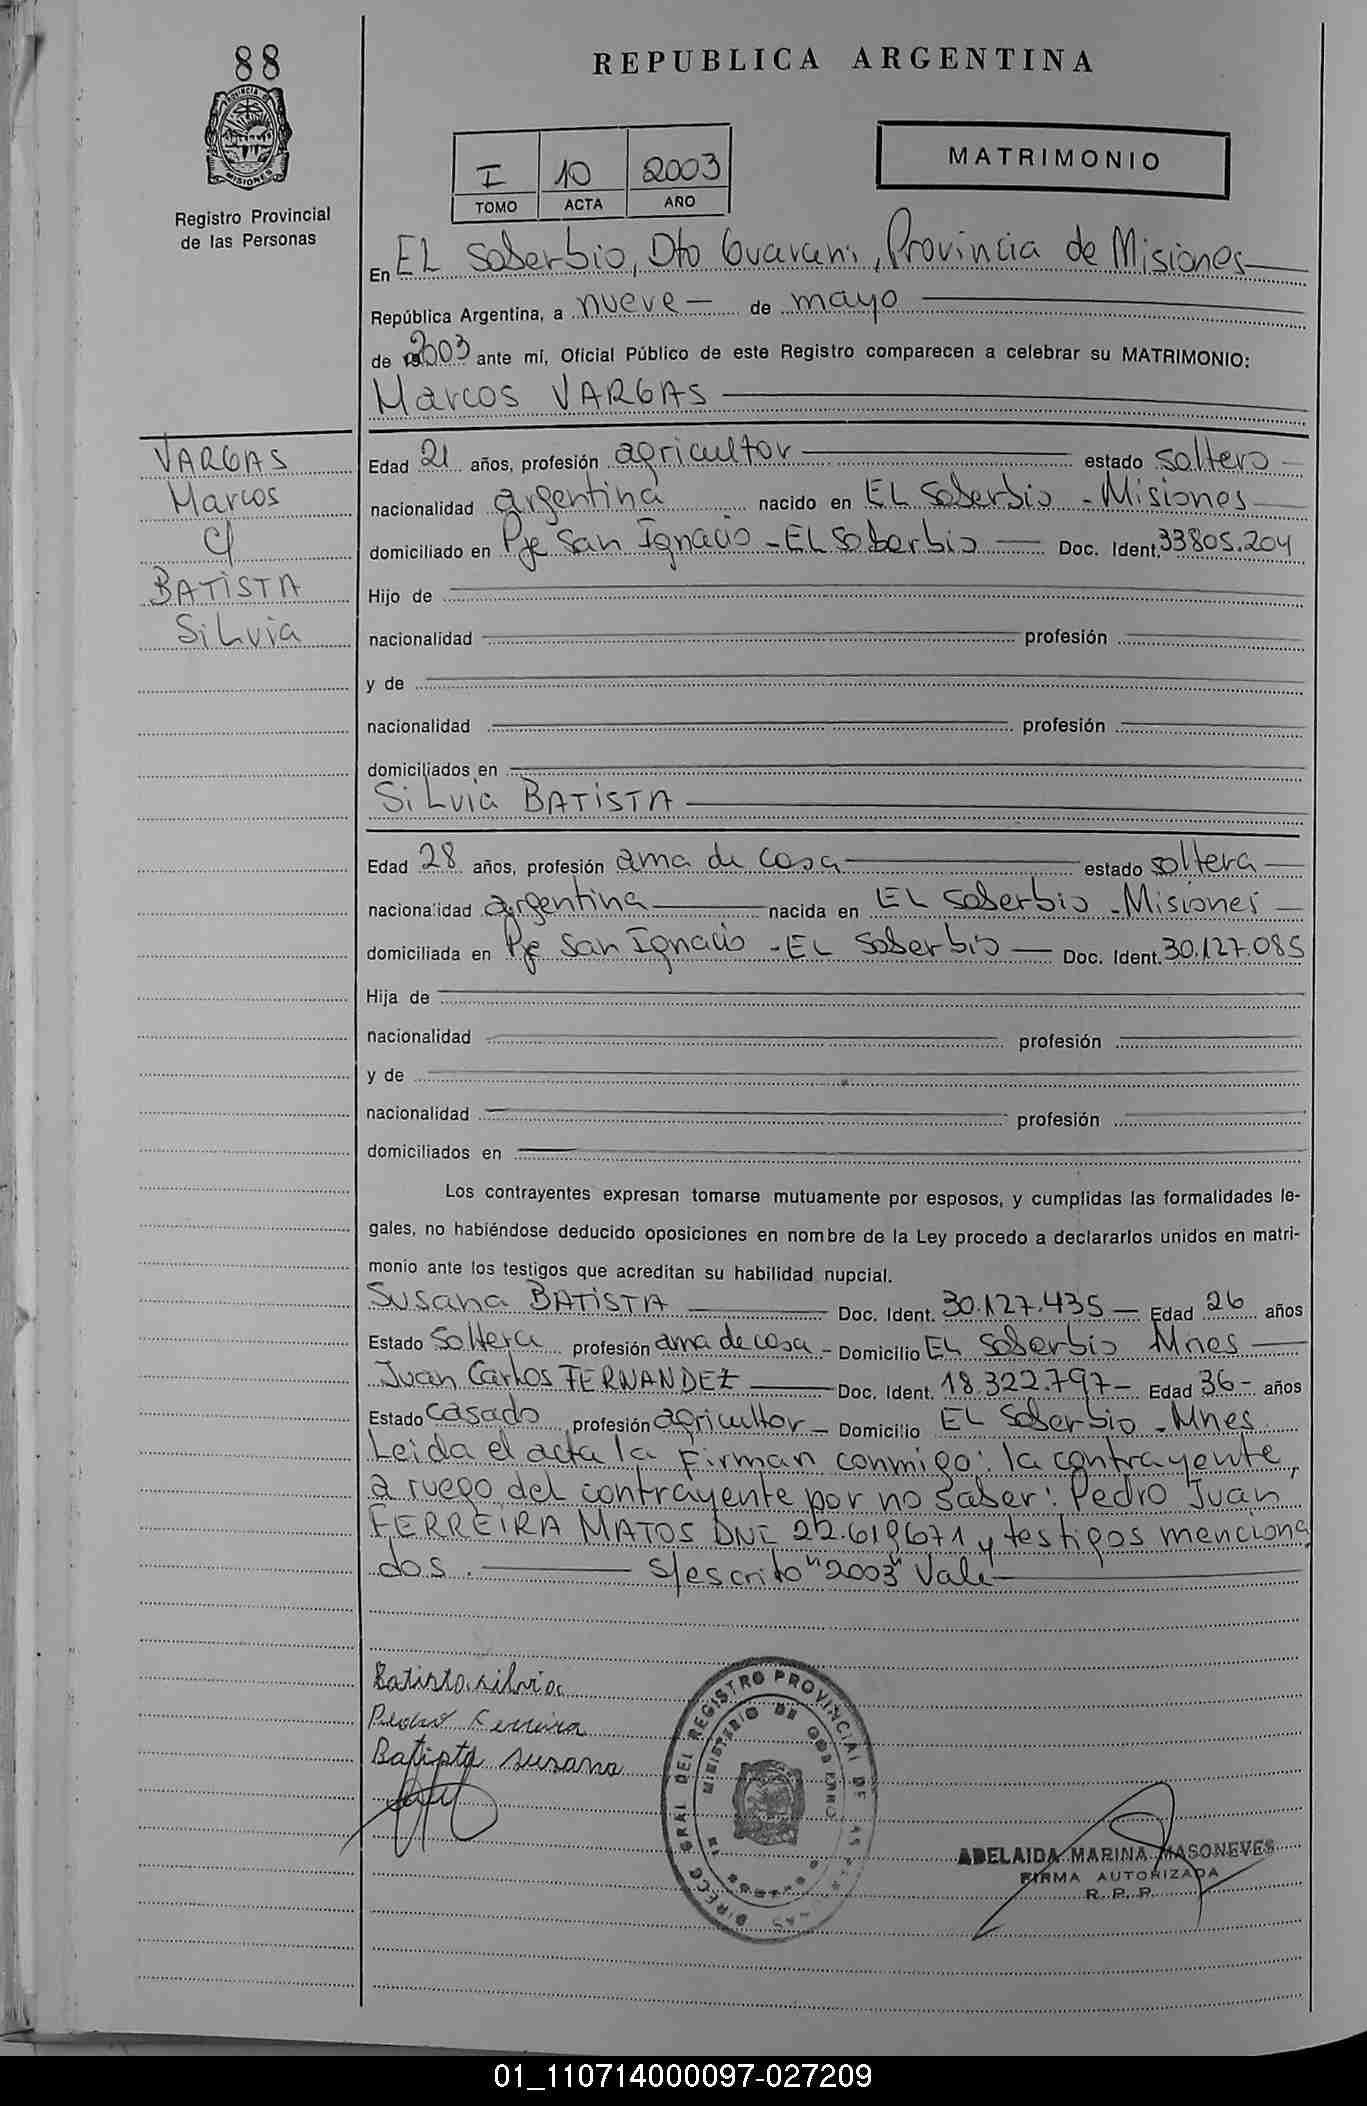 88
REPUBLICA ARGENTINA
PROVINCIA DE MISIONES
Registro Provincial
de las Personas
I 10 2003
TOMO ACTA AÑO
MATRIMONIO
En EL Soberbio, Dto Guarani, Provincia de Misiones
República Argentina, a nueve de mayo
de 2003 ante mí, Oficial Público de este Registro comparecen a celebrar su MATRIMONIO:
Marcos VARGAS
VARGAS
Marcos
c/
BATISTA
Silvia
Edad 21 años, profesión agricultor estado soltero
nacionalidad argentina nacido en EL Soberbio - Misiones
domiciliado en Pje San Ignacio - EL Soberbio Doc. Ident. 33805.204
Hijo de
nacionalidad profesión
y de
nacionalidad profesión
domiciliados en
Silvia BATISTA
Edad 28 años, profesión ama de casa estado soltera
nacionalidad argentina nacida en EL Soberbio - Misiones
domiciliada en Pje San Ignacio - EL Soberbio Doc. Ident. 30.127.085
Hija de
nacionalidad profesión
y de
nacionalidad profesión
domiciliados en
Los contrayentes expresan tomarse mutuamente por esposos, y cumplidas las formalidades le-
gales, no habiéndose deducido oposiciones en nombre de la Ley procedo a declararlos unidos en matri-
monio ante los testigos que acreditan su habilidad nupcial.
Susana BATISTA Doc. Ident. 30.127.435 Edad 26 años
Estado Soltera profesión ama de casa - Domicilio EL Soberbio Mnes
Juan Carlos FERNANDEZ Doc. Ident. 18.322.797 - Edad 36 - años
Estado casado profesión agricultor - Domicilio EL Soberbio - Mnes.
Leida el acta la firman conmigo: la contrayente,
a ruego del contrayente por no saber: Pedro Juan
FERREIRA MATOS DNI 22.619671 y testigos menciona
dos. s/escrito "2003" Vale
Batista silvia
Pedro Ferreira
Batista susana
DIRECC GRAL DEL REGISTRO PROVINCIAL DE LAS PERSONAS
MINISTERIO DE GOBIERNO
ADELAIDA MARINA MASONEVES
FIRMA AUTORIZADA
R. P. P.
01_110714000097-027209